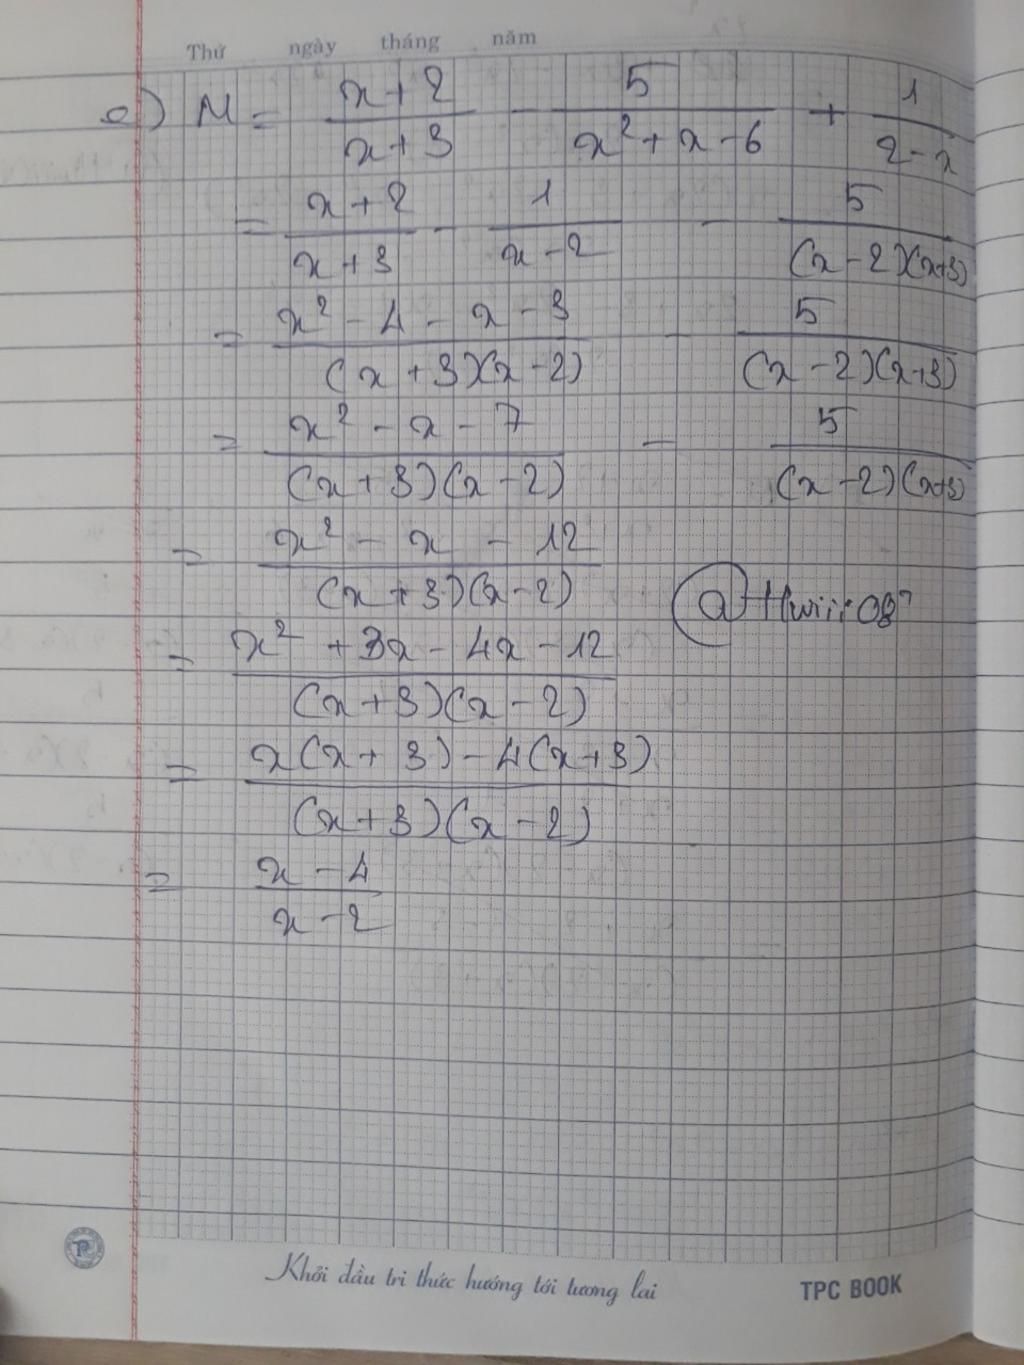 Thứ ngày tháng năm
e) M = \frac{x+2}{x+3} - \frac{5}{x^2+x-6} + \frac{1}{2-x}
= \frac{x+2}{x+3} - \frac{1}{x-2} - \frac{5}{(x-2)(x+3)}
= \frac{x^2-4-x-3}{(x+3)(x-2)} - \frac{5}{(x-2)(x+3)}
= \frac{x^2-x-7}{(x+3)(x-2)} - \frac{5}{(x-2)(x+3)}
= \frac{x^2-x-12}{(x+3)(x-2)}
= \frac{x^2+3x-4x-12}{(x+3)(x-2)}
= \frac{x(x+3)-4(x+3)}{(x+3)(x-2)}
= \frac{x-4}{x-2}
Khởi đầu tri thức hướng tới tương lai
TPC BOOK